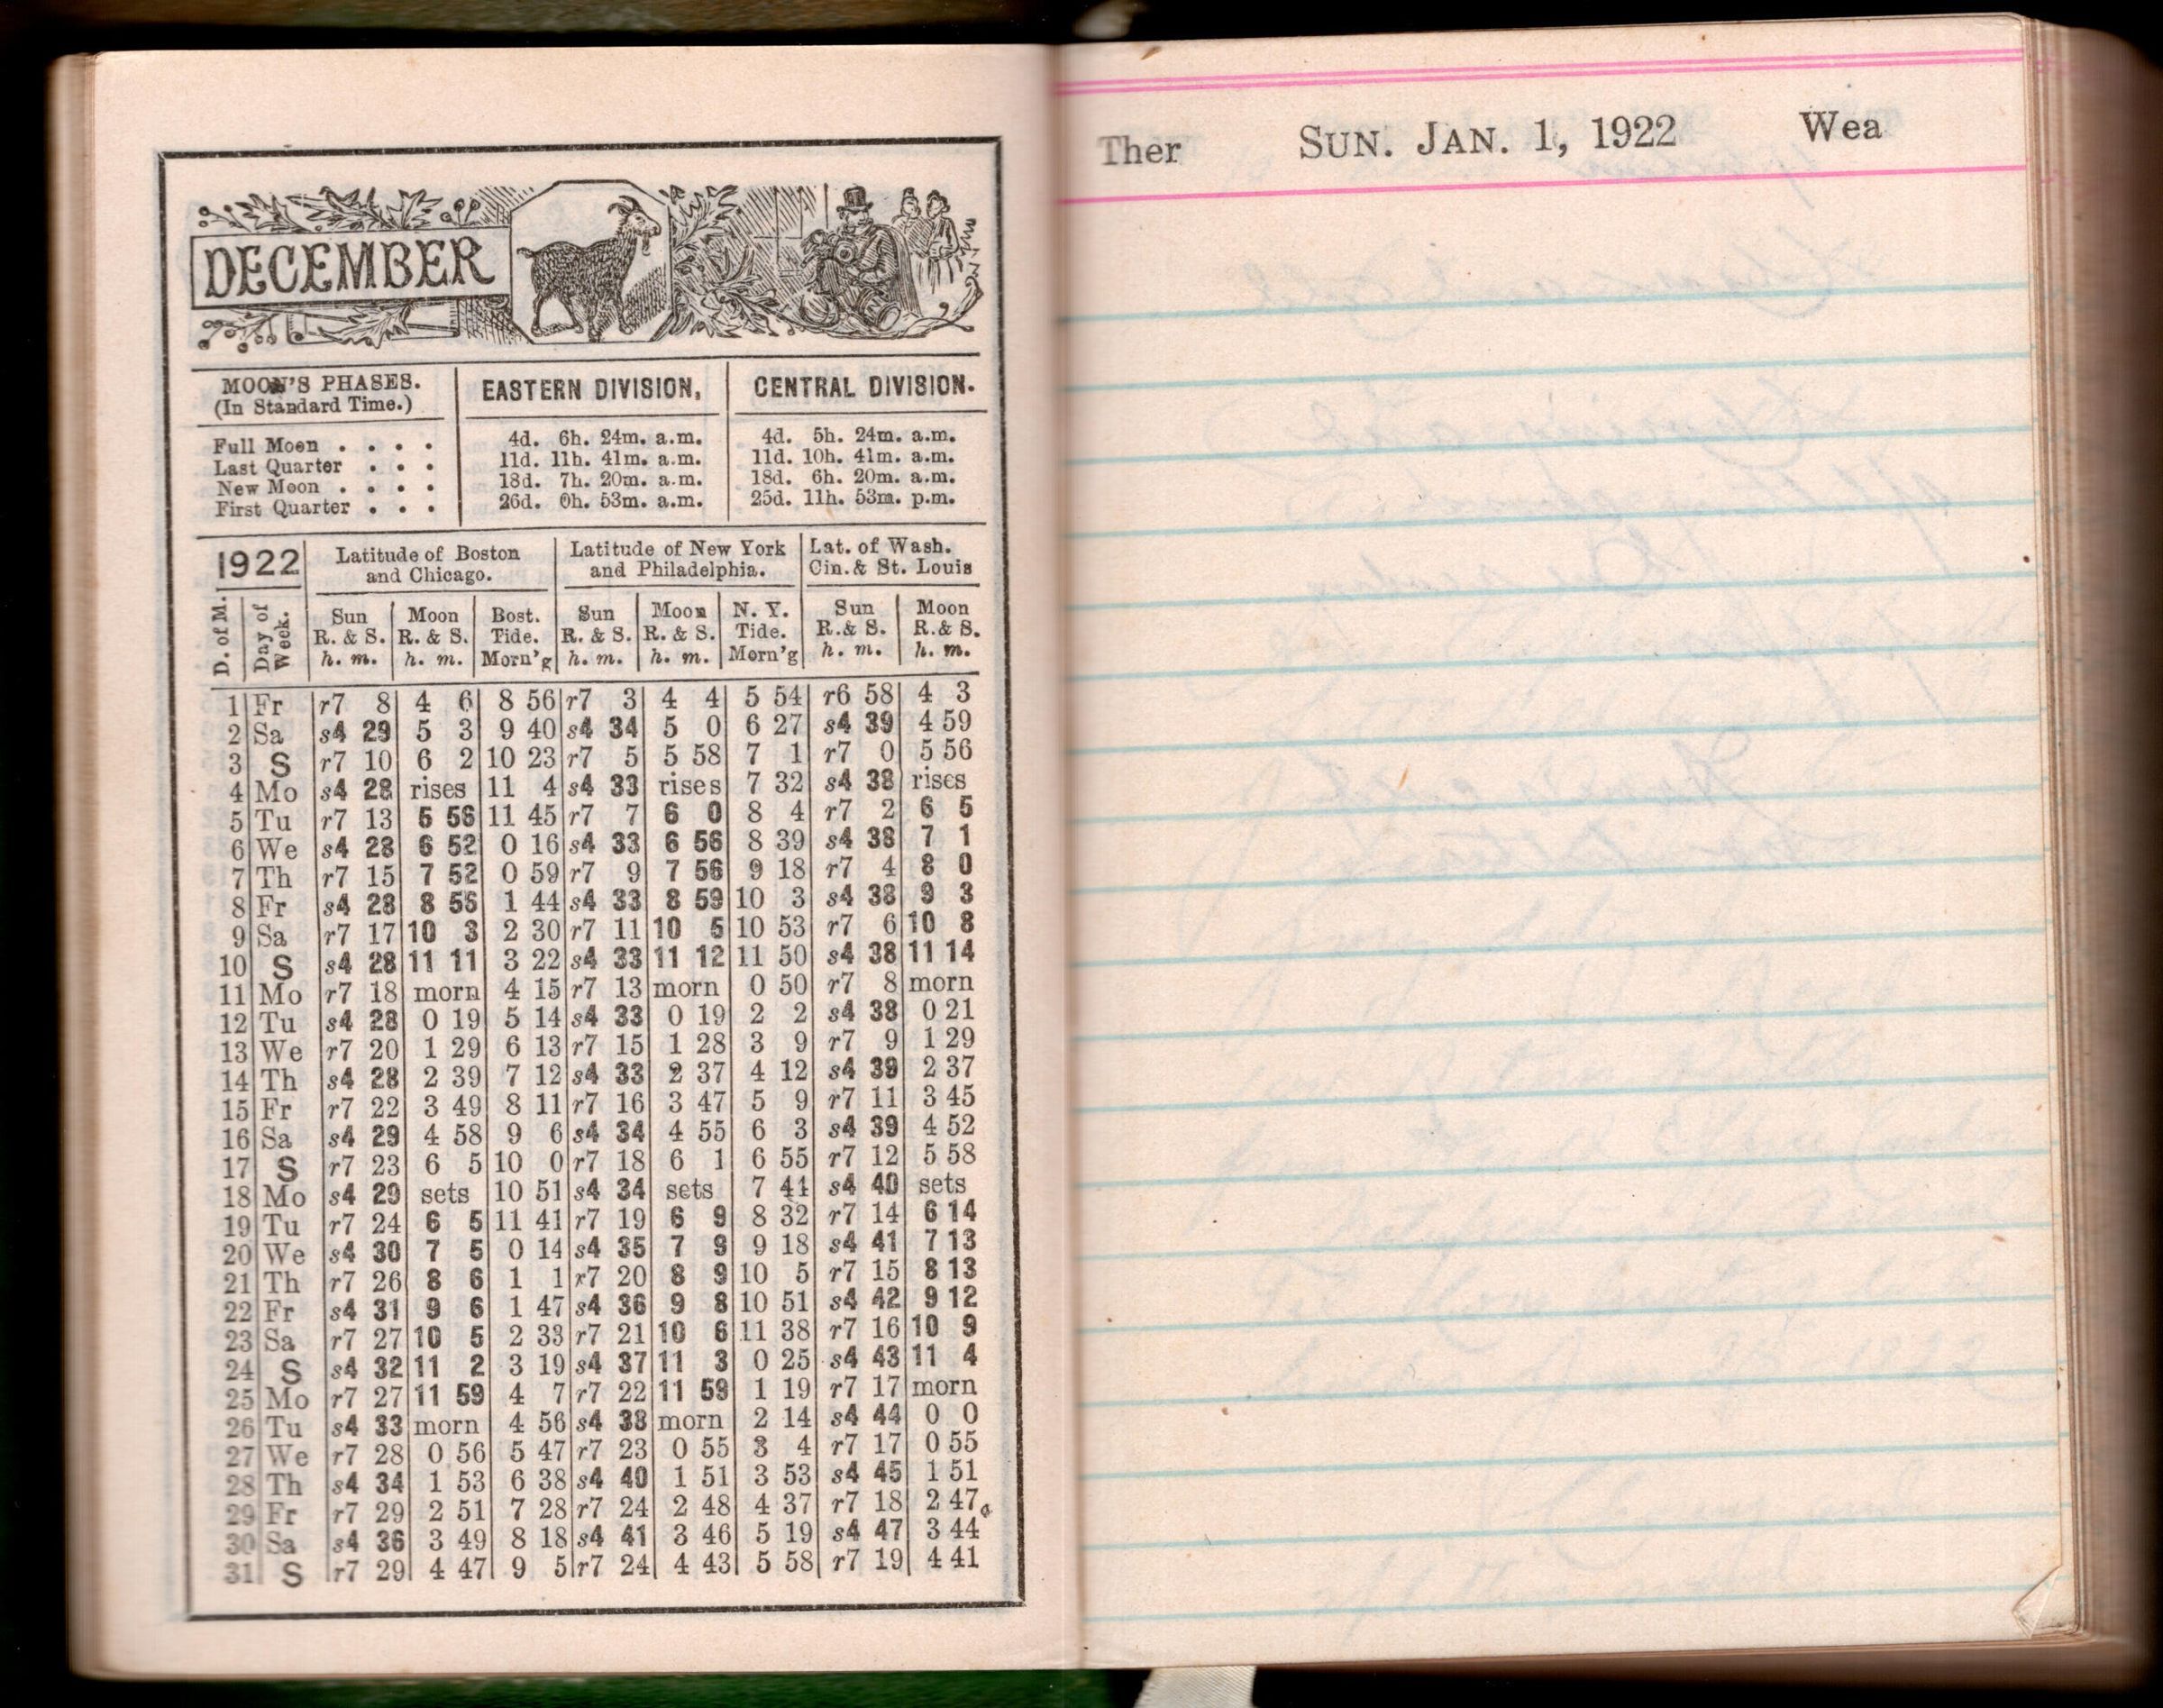 DECEMBER
MOON'S PHASES.
(In Standard Time.)
EASTERN DIVISION,
CENTRAL DIVISION.
Full Moon . . . . 4d. 6h. 24m. a.m. 4d. 5h. 24m. a.m.
Last Quarter . . . 11d. 11h. 41m. a.m. 11d. 10h. 41m. a.m.
New Moon . . . . 18d. 7h. 20m. a.m. 18d. 6h. 20m. a.m.
First Quarter . . . 26d. 0h. 53m. a.m. 25d. 11h. 53m. p.m.
1922
Latitude of Boston
and Chicago.
Latitude of New York
and Philadelphia.
Lat. of Wash.
Cin. & St. Louis
D. of M.
Day of
Week.
Sun Moon Bost. Sun Moon N. Y. Sun Moon
R. & S. R. & S. Tide. R. & S. R. & S. Tide. R. & S. R. & S.
h. m. h. m. Morn'g h. m. h. m. Morn'g h. m. h. m.
1 Fr r7 8 4 6 8 56 r7 3 4 4 5 54 r6 58 4 3
2 Sa s4 29 5 3 9 40 s4 34 5 0 6 27 s4 39 4 59
3 S r7 10 6 2 10 23 r7 5 5 58 7 1 r7 0 5 56
4 Mo s4 28 rises 11 4 s4 33 rises 7 32 s4 38 rises
5 Tu r7 13 5 56 11 45 r7 7 6 0 8 4 r7 2 6 5
6 We s4 28 6 52 0 16 s4 33 6 56 8 39 s4 38 7 1
7 Th r7 15 7 52 0 59 r7 9 7 56 9 18 r7 4 8 0
8 Fr s4 28 8 56 1 44 s4 33 8 59 10 3 s4 38 9 3
9 Sa r7 17 10 3 2 30 r7 11 10 5 10 53 r7 6 10 8
10 S s4 28 11 11 3 22 s4 33 11 12 11 50 s4 38 11 14
11 Mo r7 18 morn 4 15 r7 13 morn 0 50 r7 8 morn
12 Tu s4 28 0 19 5 14 s4 33 0 19 2 2 s4 38 0 21
13 We r7 20 1 29 6 13 r7 15 1 28 3 9 r7 9 1 29
14 Th s4 28 2 39 7 12 s4 33 2 37 4 12 s4 39 2 37
15 Fr r7 22 3 49 8 11 r7 16 3 47 5 9 r7 11 3 45
16 Sa s4 29 4 58 9 6 s4 34 4 55 6 3 s4 39 4 52
17 S r7 23 6 5 10 0 r7 18 6 1 6 55 r7 12 5 58
18 Mo s4 29 sets 10 51 s4 34 sets 7 44 s4 40 sets
19 Tu r7 24 6 5 11 41 r7 19 6 9 8 32 r7 14 6 14
20 We s4 30 7 5 0 14 s4 35 7 9 9 18 s4 41 7 13
21 Th r7 26 8 6 1 1 r7 20 8 9 10 5 r7 15 8 13
22 Fr s4 31 9 6 1 47 s4 36 9 8 10 51 s4 42 9 12
23 Sa r7 27 10 5 2 33 r7 21 10 6 11 38 r7 16 10 9
24 S s4 32 11 2 3 19 s4 37 11 3 0 25 s4 43 11 4
25 Mo r7 27 11 59 4 7 r7 22 11 59 1 19 r7 17 morn
26 Tu s4 33 morn 4 56 s4 38 morn 2 14 s4 44 0 0
27 We r7 28 0 56 5 47 r7 23 0 55 3 4 r7 17 0 55
28 Th s4 34 1 53 6 38 s4 40 1 51 3 53 s4 45 1 51
29 Fr r7 29 2 51 7 28 r7 24 2 48 4 37 r7 18 2 47
30 Sa s4 36 3 49 8 18 s4 41 3 46 5 19 s4 47 3 44
31 S r7 29 4 47 9 5 r7 24 4 43 5 58 r7 19 4 41
Ther SUN. JAN. 1, 1922 Wea